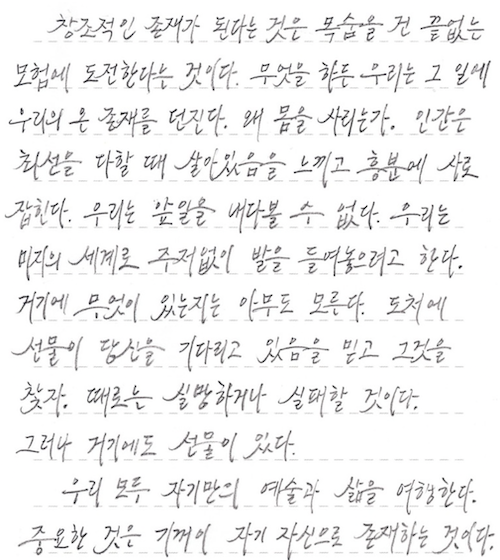 창조적인 존재가 된다는 것은 목숨을 건 끝없는
모험에 도전한다는 것이다. 무엇을 하든 우리는 그 일에
우리의 온 존재를 던진다. 왜 몸을 사리는가. 인간은
최선을 다할 때 살아있음을 느끼고 흥분에 사로
잡힌다. 우리는 앞일을 내다볼 수 없다. 우리는
미지의 세계로 주저없이 발을 들여놓으려고 한다.
거기에 무엇이 있는지는 아무도 모른다. 도처에
선물이 당신을 기다리고 있음을 믿고 그것을
찾자. 때로는 실망하거나 실패할 것이다.
그러나 거기에도 선물이 있다.
우리 모두 자기만의 예술과 삶을 여행한다.
중요한 것은 기꺼이 자기 자신으로 존재하는 것이다